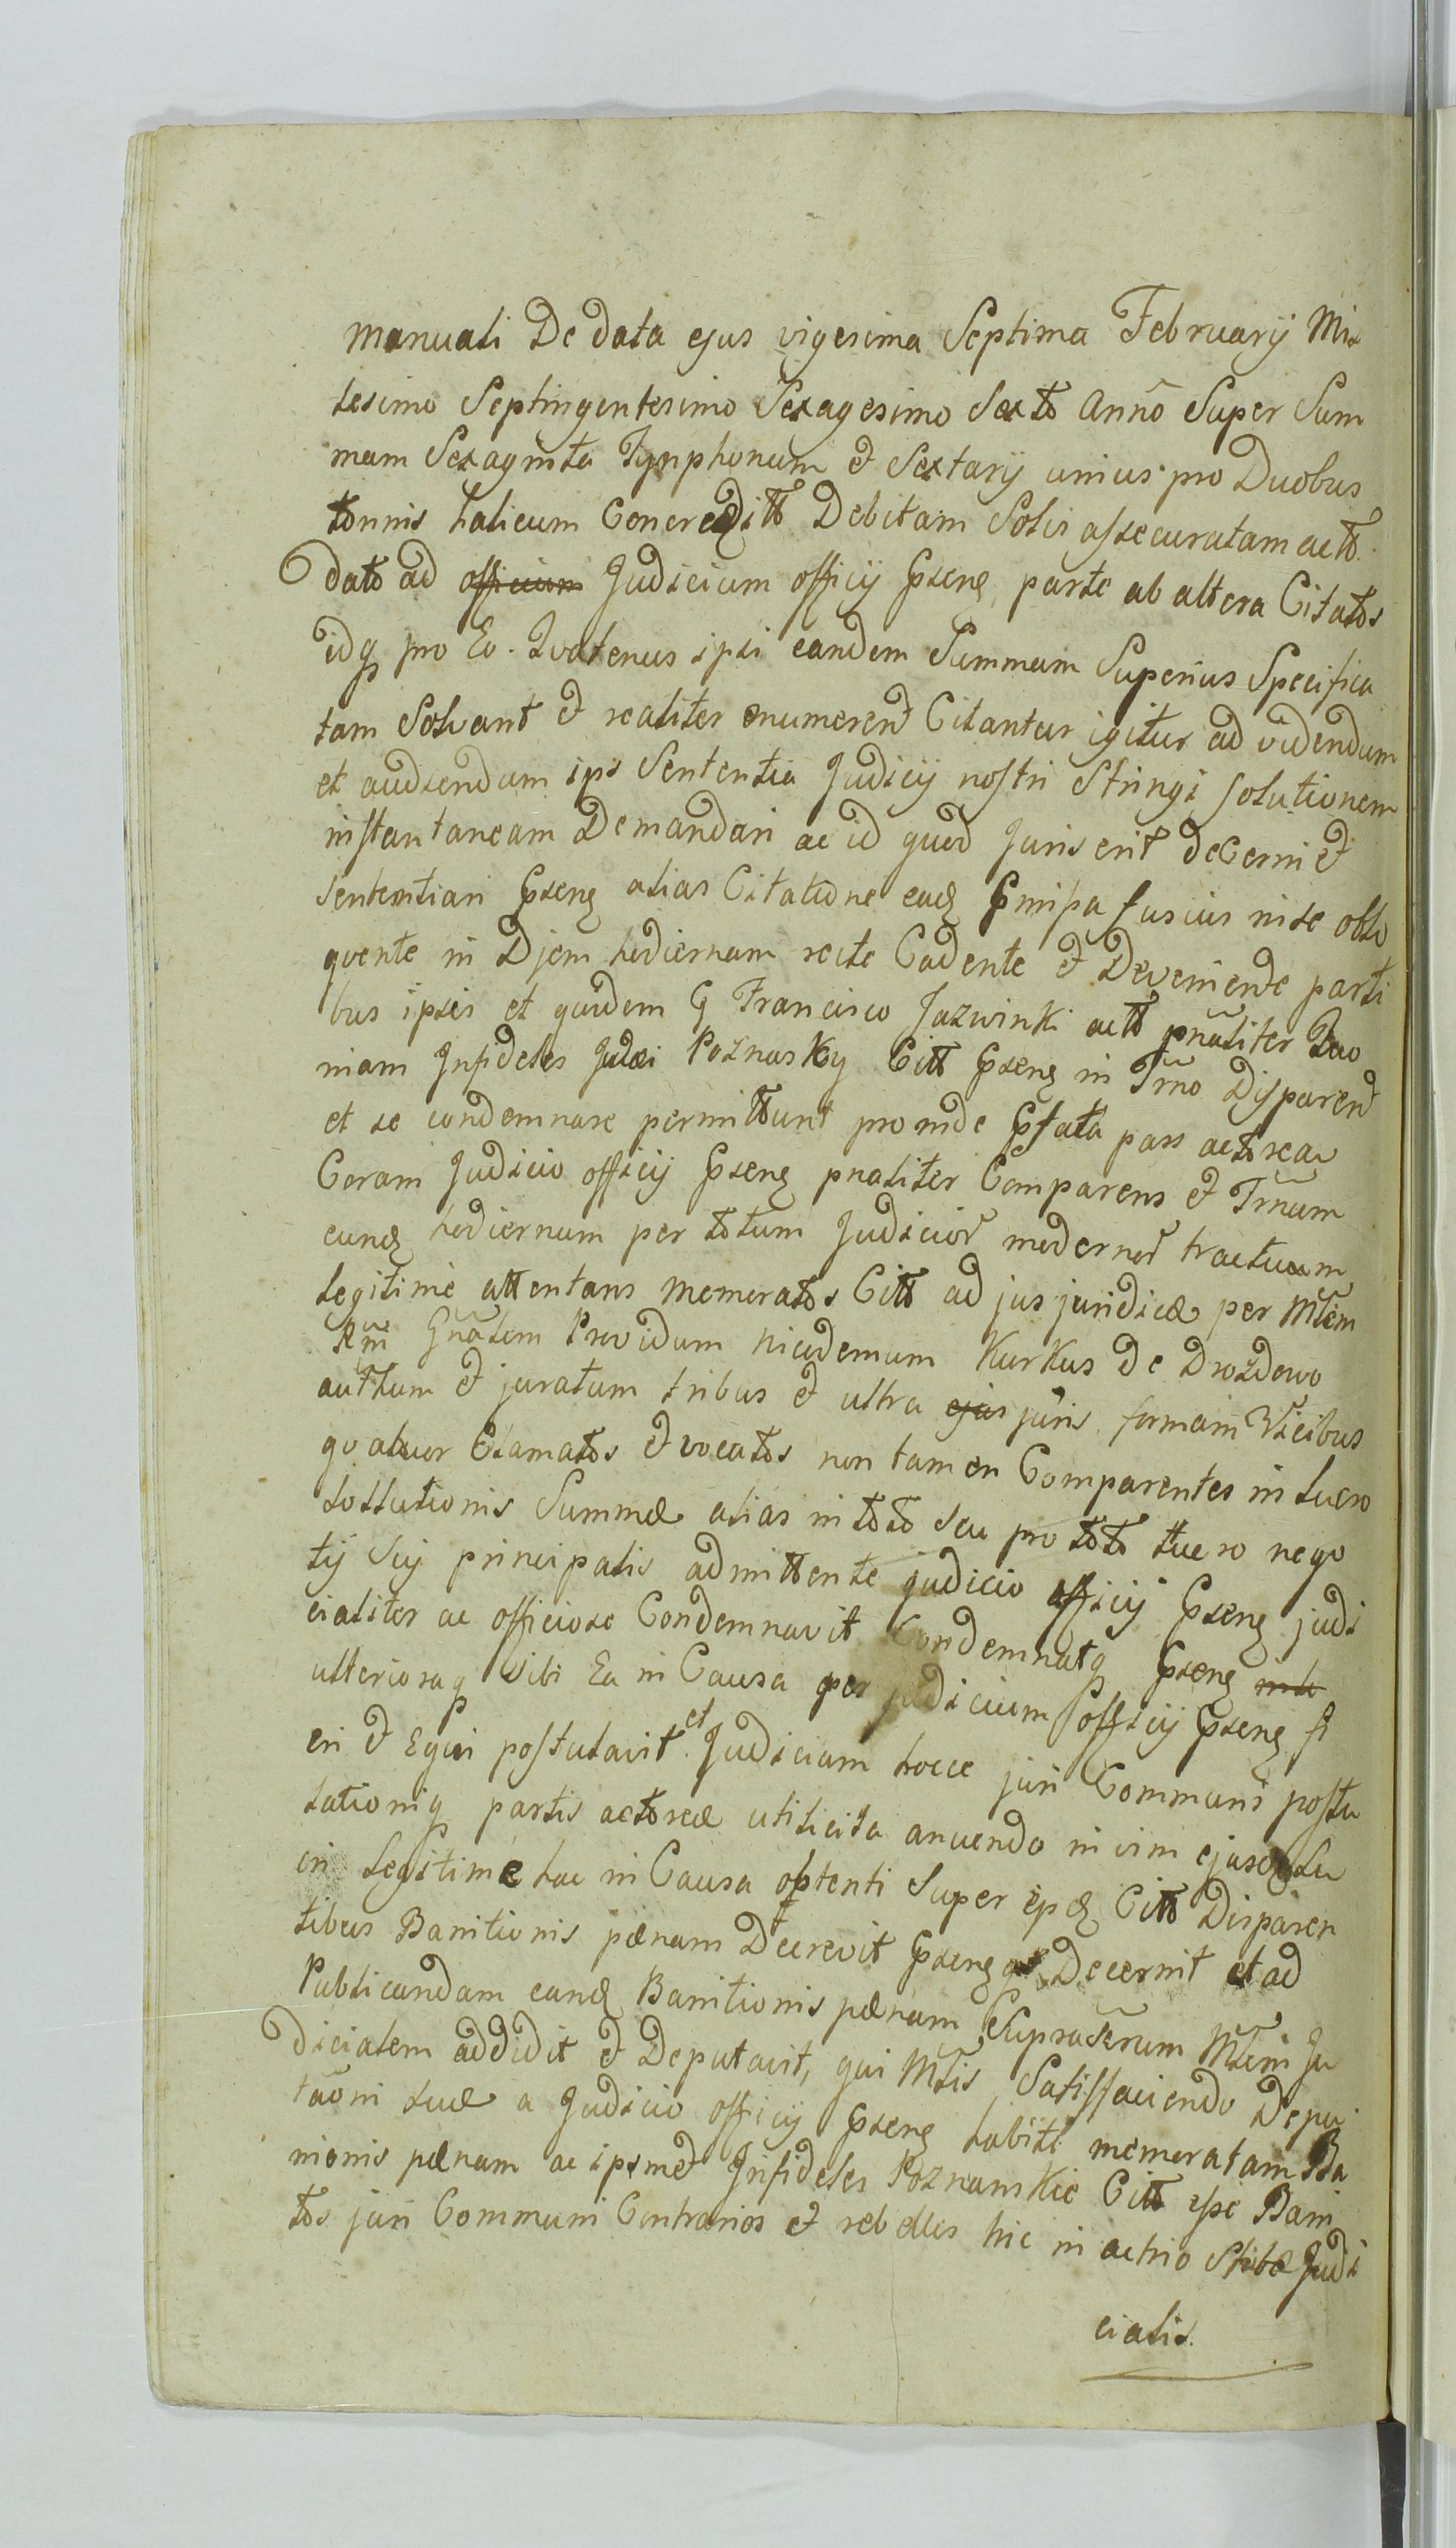 manuali De data ejus vigesima Septima Februarij Mil
lesimo Septingentesimo Sexagesimo Sexto Anno Super Sum
mam Sexaginta Tynphonum et Sextarij unius pro Duobus
tonnis halicum Concreditt Debitam Solvi assecuratam actt
dato ad officium Judicium officij Psens parte ab altera Citatos
idq pro Eo. Quatenus ipsi eandem Summam Superius Specifica
tam Solvant et realiter enumerent Citantur igitur ad videndum
et audiendum ipi Sententia Judicij nostri Stringi solutionem
instantaneam Demandari ac id quod Juris erit deCerni et
sententiari Psens alias Citatione ead Pmissa fusius in se oblo
quente in Djem hodiernam recte Cadente et Deveniende parti
bus ipsis et quidem G Francisco Jazwinki actt pnaliter Quo
niam Infideles Judæi Poznasky Citt Psens in Trno Disparent
et se condemnare permittunt proinde Pfata pars actorea
Coram Judicio officij Psens pnaliter Comparens et Trnum
eund hodiernum per totum Judicior modernor tractuum
legitime attentans memoratos Citt ad jus juridice per Mtem
Rni Gnalem Providum Nicodemum Kurkus De Drozdowo
autthum et juratum tribus et ultra ejus juris formam Vicibus
quatuor Clamatos et vocatos non tamen Comparentes in lucro
sollutionis Summæ alias in toto seu pro toto lucro nego
tij Sui principalis admittente judicio officij Psens judi
cialiter ac officiose Condemnavit Condemnatq Psens
ulterioraq Sibi Ea in Causa per judicium officij Psens fi
eri et Eqvi postulavit. et Judicium hocce juri Communi postu
lationiq partis actoreæ utilicita anuendo in vim ejusd Lu
cri legitime hac in Causa obtenti Super ipos Citt Disparen
tibus Banitionis pænam Decrevit Psensq Decernit et ad
Publicandam eand Banitionis pænam Suprascrum Mtem Ju
dicialem addidit et Deputavit, qui Mtis Satisfaciendo Depu
taoni suæ a Judicio officij Psens habite memoratam Ba
nionis pænam ac ipsmet Infideles Poznamkie Citt esse Bani
tos juri Communi Contrarios et rebelles hic in actrio Stubæ Judi
cialis.